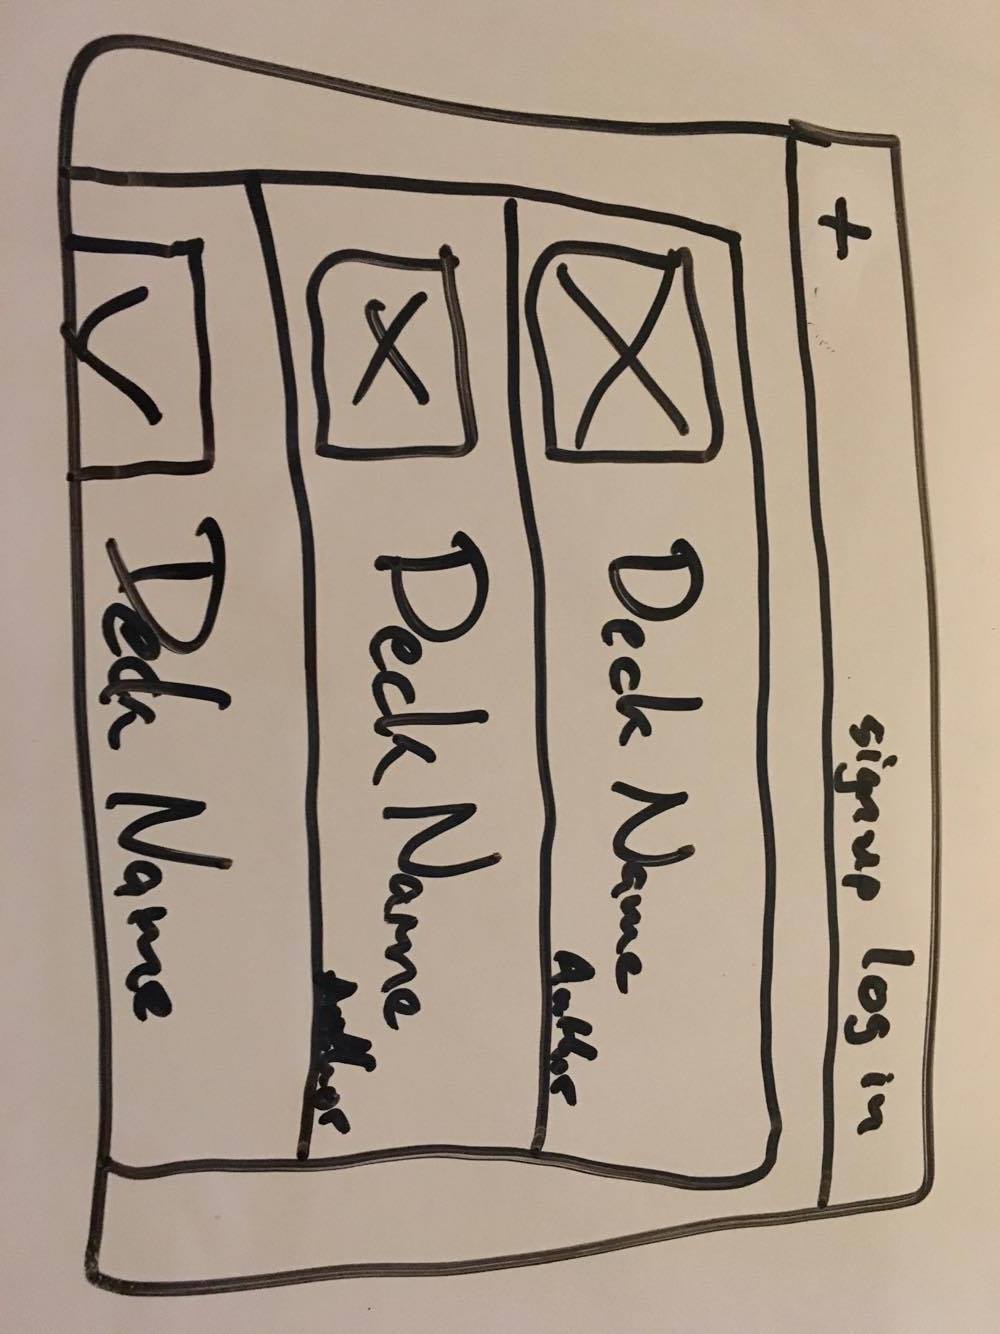 + signup log in
Deck Name
Author
Deck Name
Author
Deck Name